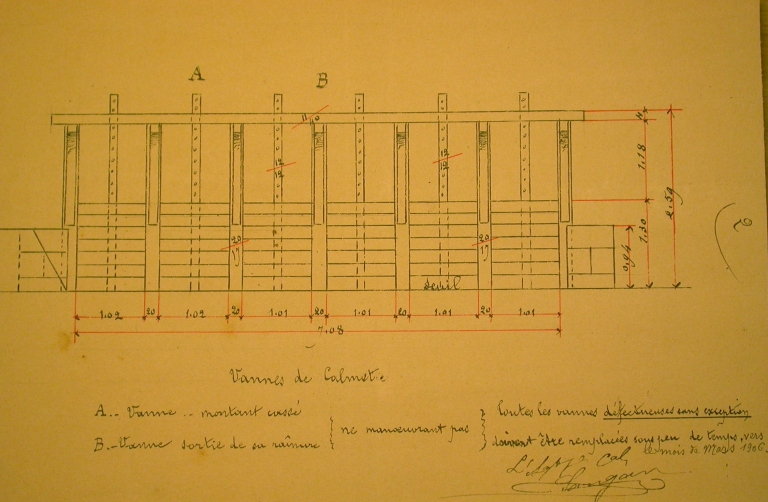 A B
11
10
12
12
12
12
11
1.18
2.59
20
15
20
15
1.30
0.94
2
Seuil
1.02 20 1.02 20 1.01 20 1.01 20 1.01 20 1.01
7.08
Vannes de Calmette
A.- Vanne .- montant cassé
B.- Vanne sortie de sa rainure
ne manœuvrant pas
toutes les vannes défectueuses sans exception
doivent être remplacées sous peu de temps, vers
le mois de Mars 1906.